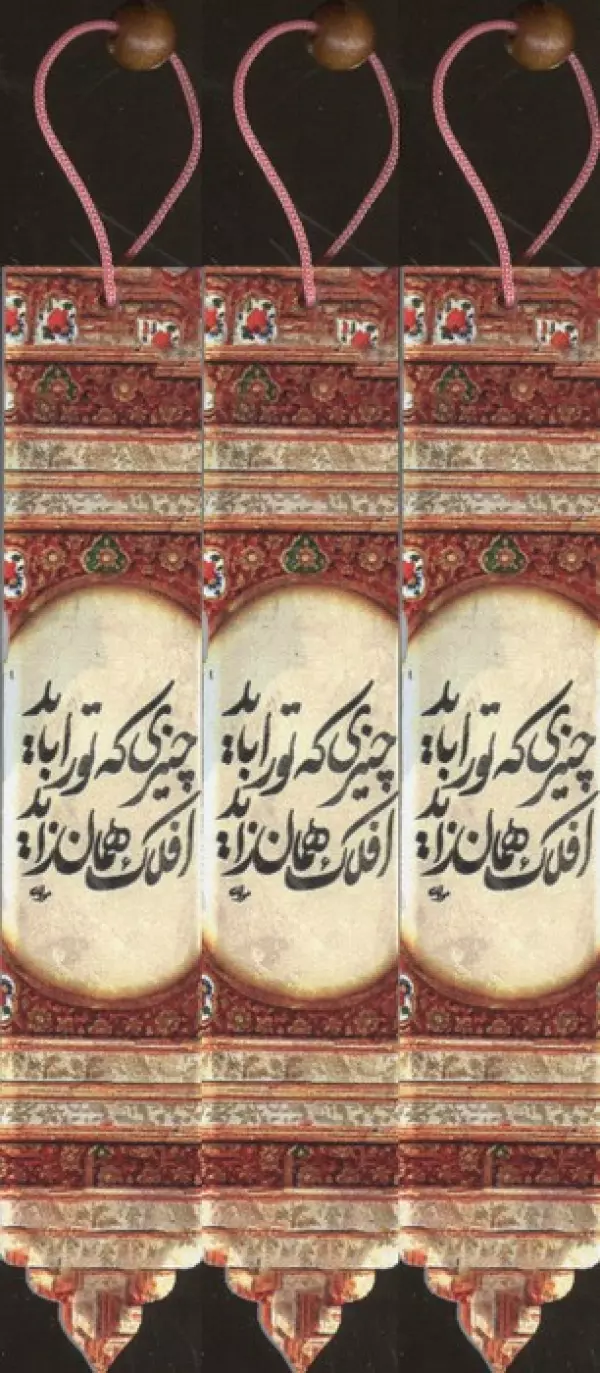 چیزی که تو را باید
افلاک همان زاید
چیزی که تو را باید
افلاک همان زاید
چیزی که تو را باید
افلاک همان زاید